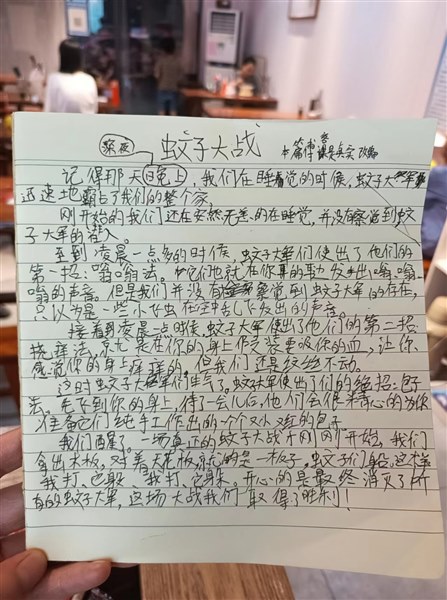 蚊子大战
记得那天晚上,我们在睡着觉的时候,蚊子大军
迅速地霸占了我们的整个家,
刚开始的我们还在安然无恙的在睡觉,并没有察觉到蚊
子大军的存入
等到凌晨一点多的时候,蚊子大军们使出了他们的
第一招:嗡嗡法。他们也就在你耳的
嗡的声音。但是我们并没有察觉到蚊子大军的存在,
只以为是一些小飞虫在空中乱飞发出的声音。
接着到凌晨一点时候,蚊子大军使出了他们的第二招
挠痒法,就是在你的身上假装要吸你的血,让你
感觉你的身上痒痒的,但我们还是纹丝不动。
这时蚊子大军们生气了,蚊子大军使出了们的绝招:包子
法。先飞到你的身上,待了一会儿后,他们会很精心的为你
准备它们纯手工作出的一个个小难的包子
我们酉星了。一场真正的蚊子大战才刚刚开始,我们
拿出木板,对着天花板,就的是一板子,蚊子们躲,这样
我打、它躲、我打、它躲。开心的是最终消灭了所
有的蚊子大军,这场大战我们取得了胜利!